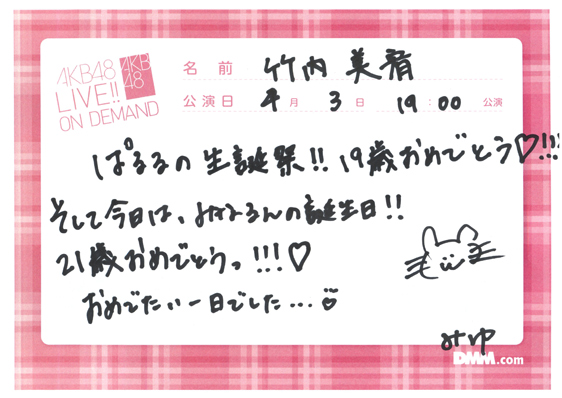 AKB48
LIVE!!
ON DEMAND
AKB
48
名前 竹内 美宥
公演日 4月 3日 19:00 公演
ぱるるの生誕祭!! 19歳おめでとう♡!!!
そして今日は、みなるんの誕生日!!
21歳おめでとうっ!!!♡
おめでたい一日でした...
みゆ
DMM.com